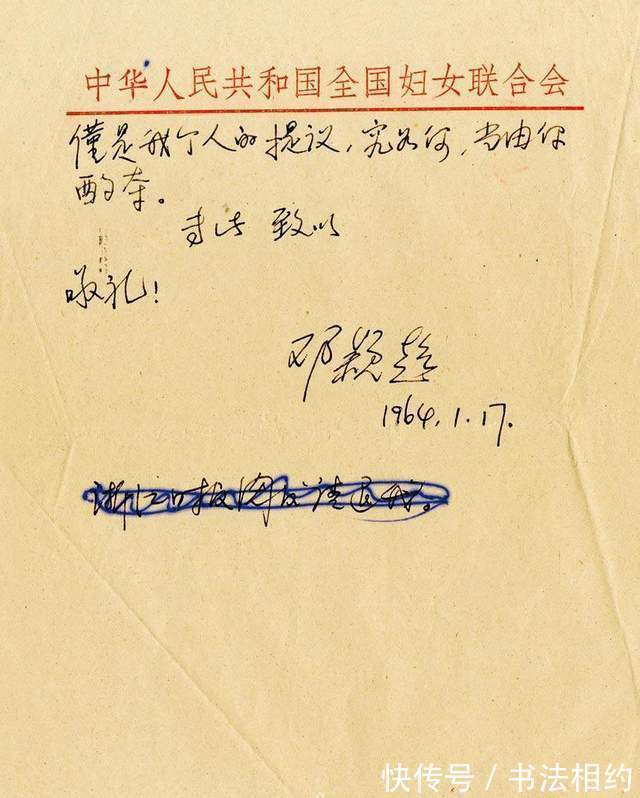 中华人民共和国全国妇女联合会
僅是我个人的提议，究如何，当由你
酌夺。
专此 致以
敬礼！
邓颖超
1964.1.17.
浙江日报后请退我。
快传号 / 书法相约